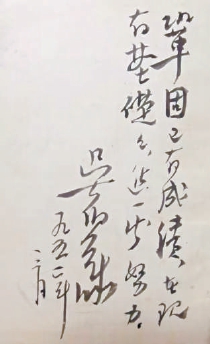 巩固已有成绩在现
有基礎上进一步努力
吴伯箫
九五二年
二月